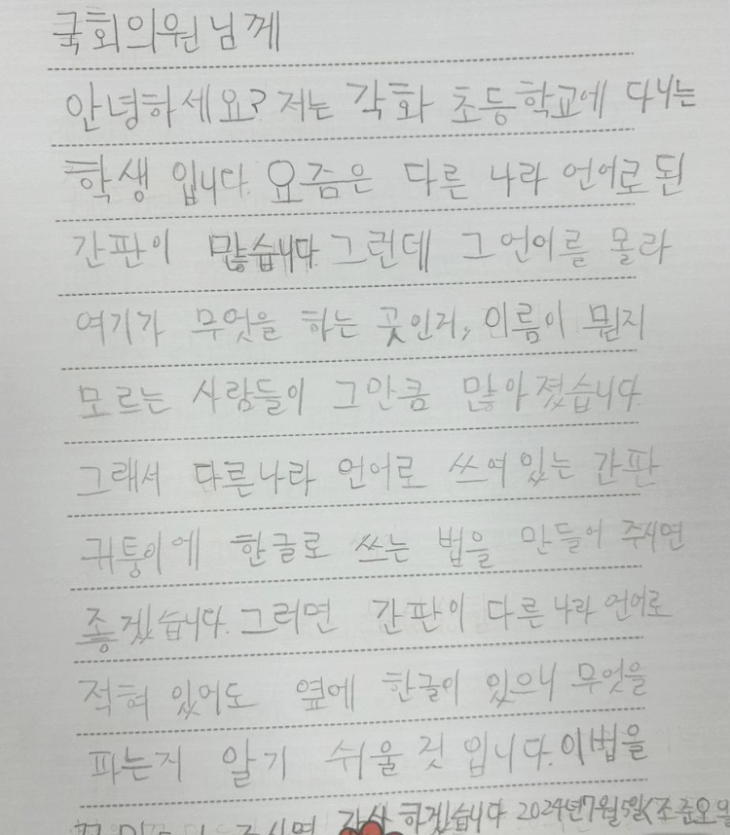 국회의원님께
안녕하세요? 저는 각화 초등학교에 다니는
학생 입니다. 요즘은 다른 나라 언어로 된
간판이 많습니다. 그런데 그 언어를 몰라
여기가 무엇을 하는 곳인지, 이름이 뭔지
모르는 사람들이 그만큼 많아졌습니다.
그래서 다른나라 언어로 쓰여있는 간판
귀퉁이에 한글로 쓰는 법을 만들어 주시면
좋겠습니다. 그러면 간판이 다른 나라 언어로
적혀 있어도 옆에 한글이 있으니 무엇을
파는지 알기 쉬울 것 입니다. 이법을
감사 하겠습니다 2024년7월5일(조준오